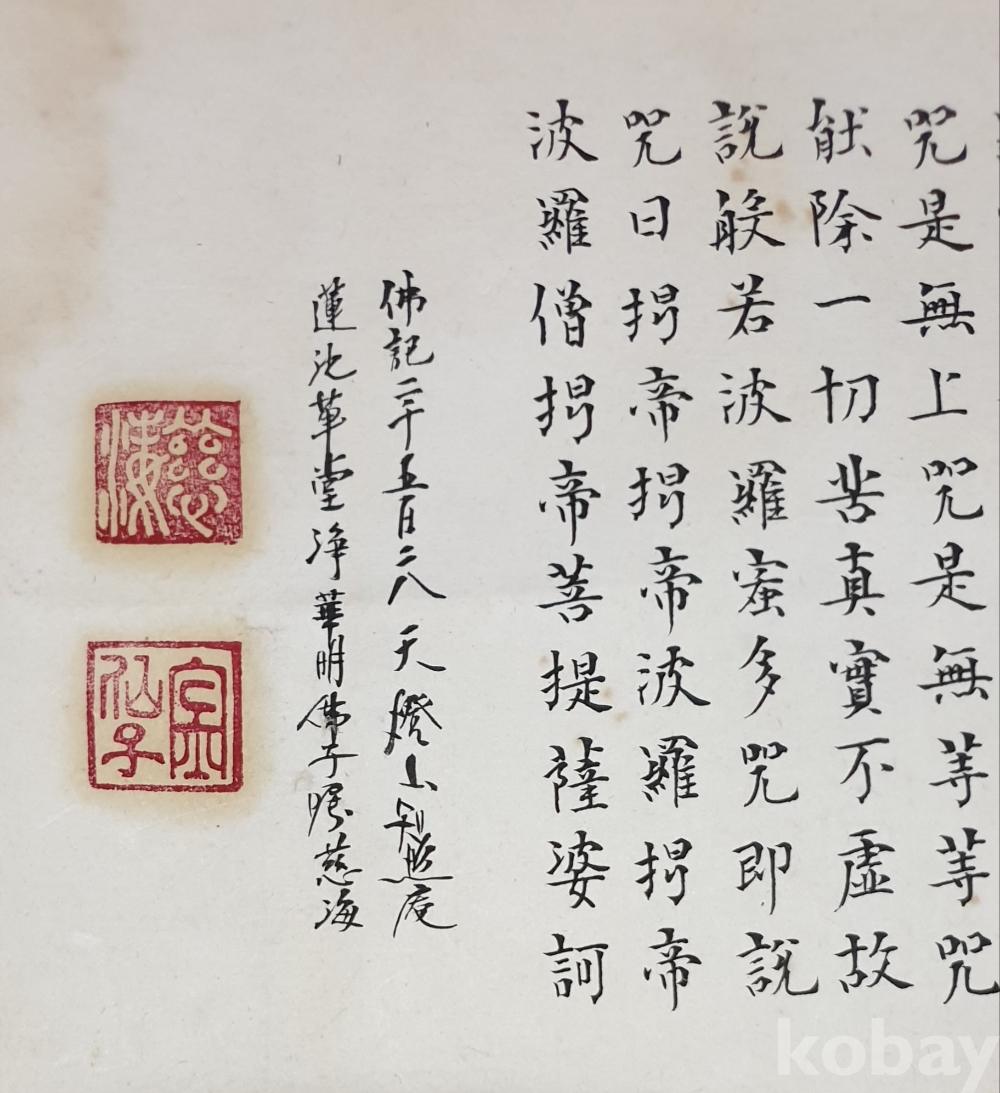 咒是無上咒是無等等咒
能除一切苦真實不虛故
說般若波羅蜜多咒即說
咒曰揭帝揭帝波羅揭帝
波羅僧揭帝菩提薩婆訶
佛記二千五百二八 天燈山照庵
蓮池草堂淨華明佛子慈海
慈海
仙子
kobay